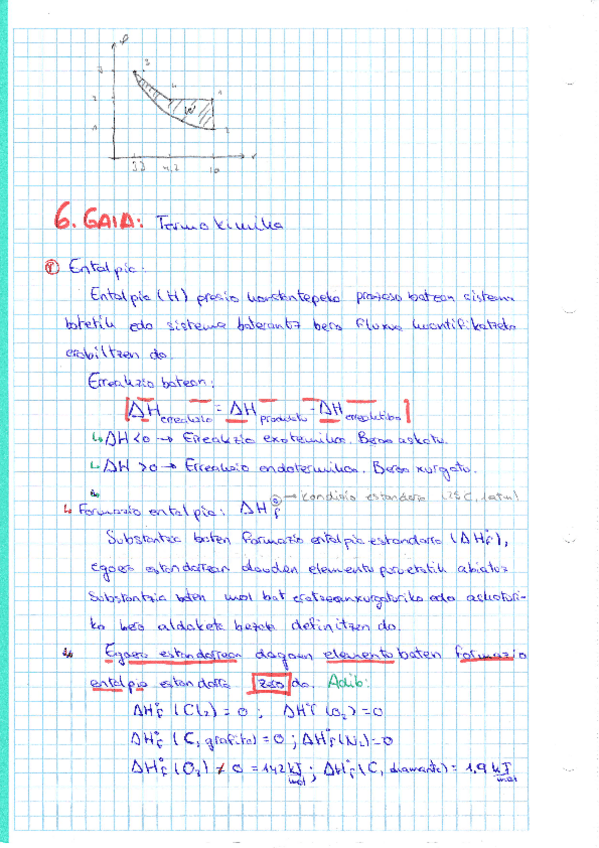 P
3
4
1
W
2
3,3 4,7 10 V
6. GAIA: Termokimika
① Entalpia:
Entalpia (H) presio konstantepeko prozesu batean sistema
batetik edo sistema baterantz bero fluxua kuantifikatzeko
erabiltzen da.
Erreakzio batean:
[ΔH erreakzio = ΔH produktu - ΔH erreaktiboa]
↳ ΔH < 0 → Erreakzio exotermikoa. Beroa askatu.
↳ ΔH > 0 → Erreakzio endotermikoa. Beroa xurgatu.
↳ Formazio entalpia: ΔH°f → Kondizio estandarra (25C, 1atm)
Substantzia baten formazio entalpia estandarra (ΔH°f),
egoera estandarrean dauden elementu puruetatik abiatuz
substantzia baten mol bat eratzean xurgaturiko edo askaturi-
ko bero aldaketa bezala definitzen da.
↳ Egoera estandarrean dagoen elementu baten formazio
entalpia estandarra zero da. Adib:
ΔH°f (Cl2) = 0 ; ΔH°f (O2) = 0
ΔH°f (C, grafito) = 0 ; ΔH°f (N2) = 0
ΔH°f (O3) ≠ 0 = 142 kJ/mol ; ΔH°f (C, diamante) = 1,9 kJ/mol